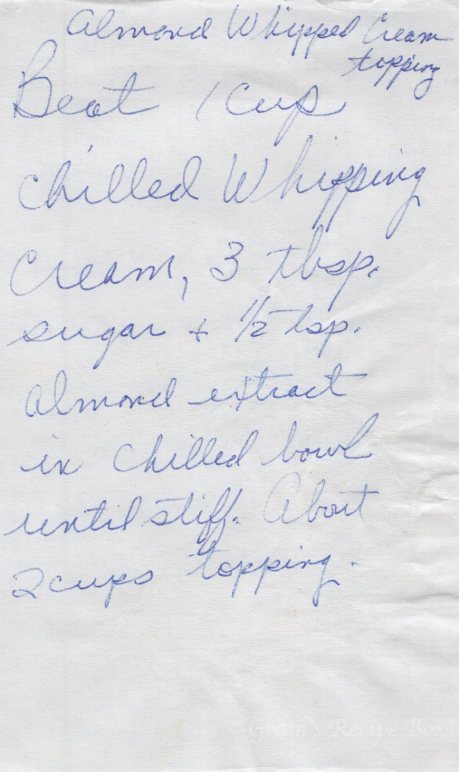 Almond Whipped Cream
topping
Beat 1 cup
chilled Whipping
Cream, 3 tbsp.
sugar + 1/2 tsp.
almond extract
in chilled bowl
until stiff. About
2 cups topping.
Gram's Recipe Box